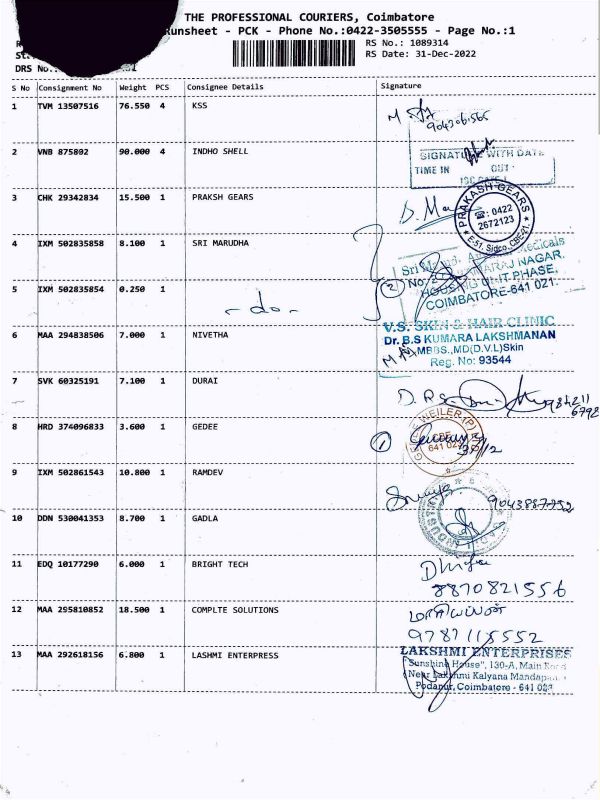 THE PROFESSIONAL COURIERS, Coimbatore
Runsheet - PCK - Phone No.:0422-3505555 - Page No.:1
RS No.: 1089314
RS Date: 31-Dec-2022
DRS No.
S No Consignment No Weight PCS Consignee Details Signature
1 TVM 13507516 76.550 4 KSS
2 VNB 875802 90.000 4 INDHO SHELL
SIGNATURE WITH DATE
TIME IN OUT
3 CHK 29342834 15.500 1 PRAKSH GEARS
PRAKASH GEARS
☎: 0422
2672123
E-51, Sidco, CBE-21.
4 IXM 502835858 8.100 1 SRI MARUDHA
Sri Medicals
HOUSING UNIT PHASE,
COIMBATORE-641 021.
5 IXM 502835854 0.250 1 - do -
2
V.S. SKIN & HAIR CLINIC
6 MAA 294838506 7.000 1 NIVETHA
Dr. B.S KUMARA LAKSHMANAN
MBBS.,MD(D.V.L)Skin
Reg. No: 93544
7 SVK 60325191 7.100 1 DURAI
8 HRD 374096833 3.600 1 GEDEE
1
WEILER (P)
9 IXM 502861543 10.800 1 RAMDEV
9043887752
10 DDN 530041353 8.700 1 GADLA
11 EDQ 10177290 6.000 1 BRIGHT TECH
8870821556
12 MAA 295810852 18.500 1 COMPLTE SOLUTIONS
9787118552
13 MAA 292618156 6.800 1 LASHMI ENTERPRESS
LAKSHMI ENTERPRISES
"Sunshine House", 130-A, Main Road
Near Lakshmi Kalyana Mandapam
Podanur, Coimbatore - 641 023